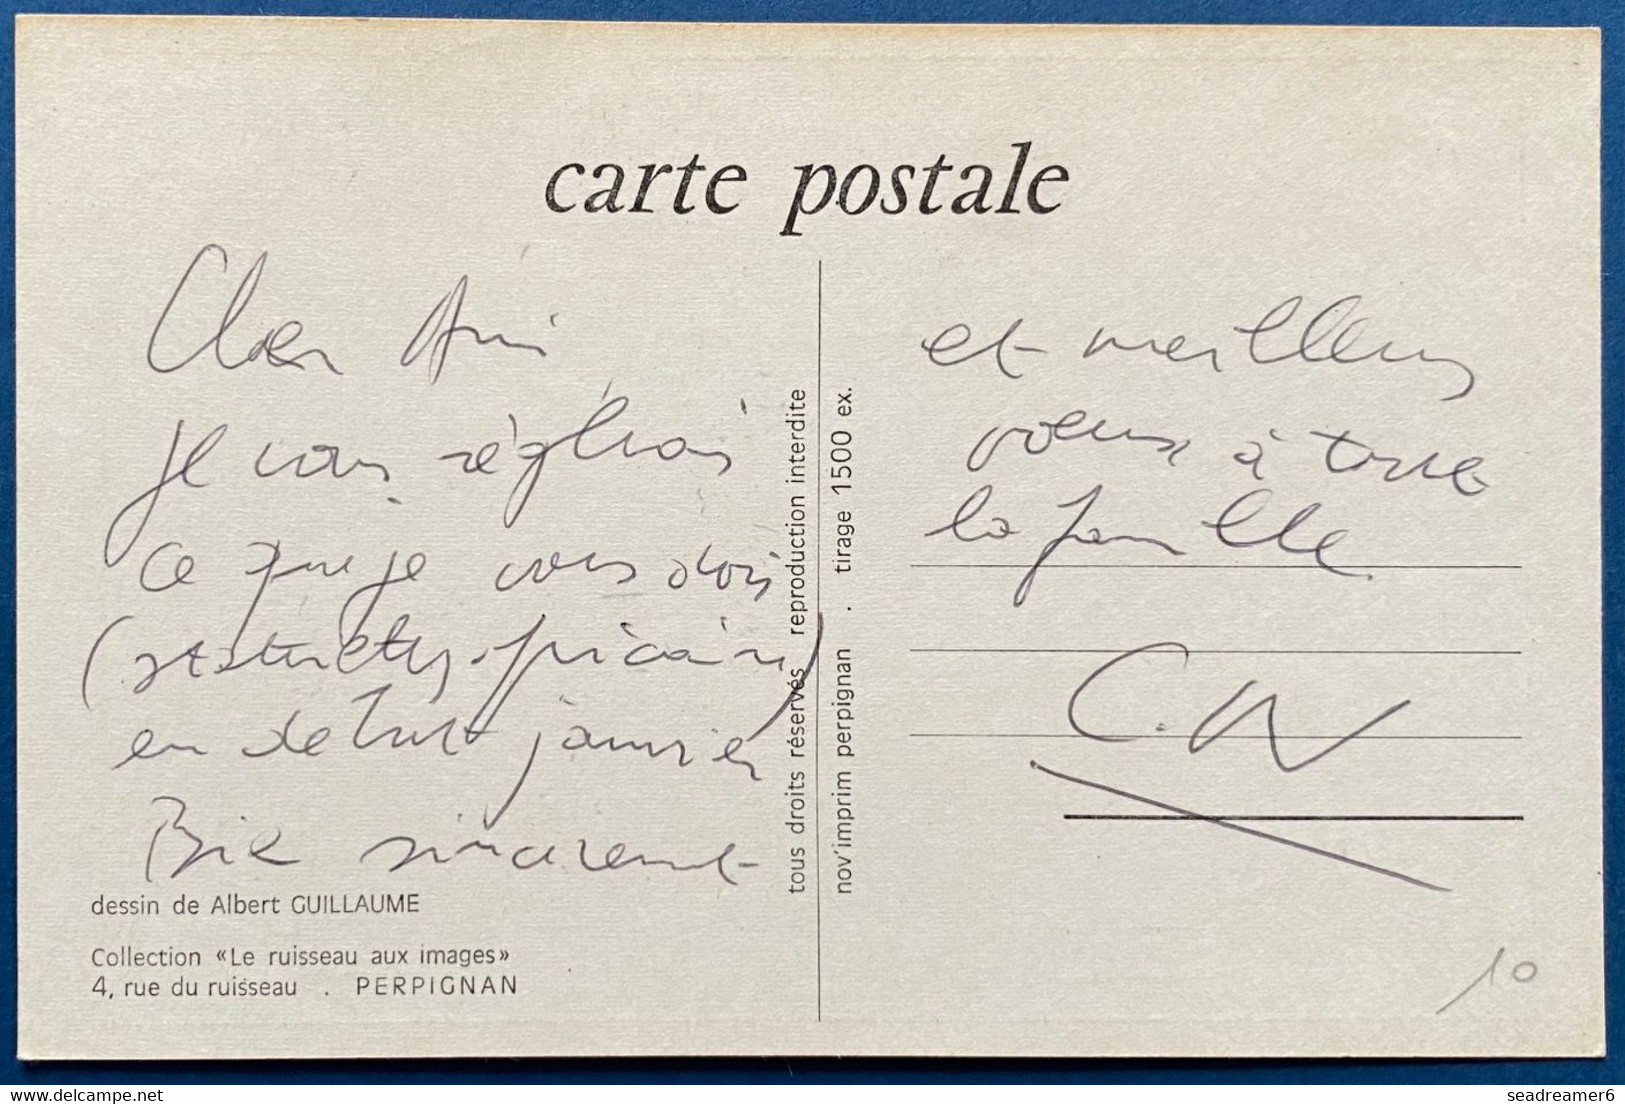 carte postale
Cher Ami
je vous réglerai
ce que je vous dois
en début janvier
Bien sincèrement
dessin de Albert GUILLAUME
Collection «Le ruisseau aux images»
4, rue du ruisseau . PERPIGNAN
tous droits réservés reproduction interdite
nov'imprim perpignan . tirage 1500 ex.
et meilleurs
voeux à toute
la famille
10
delcampe.net
seadreamer6